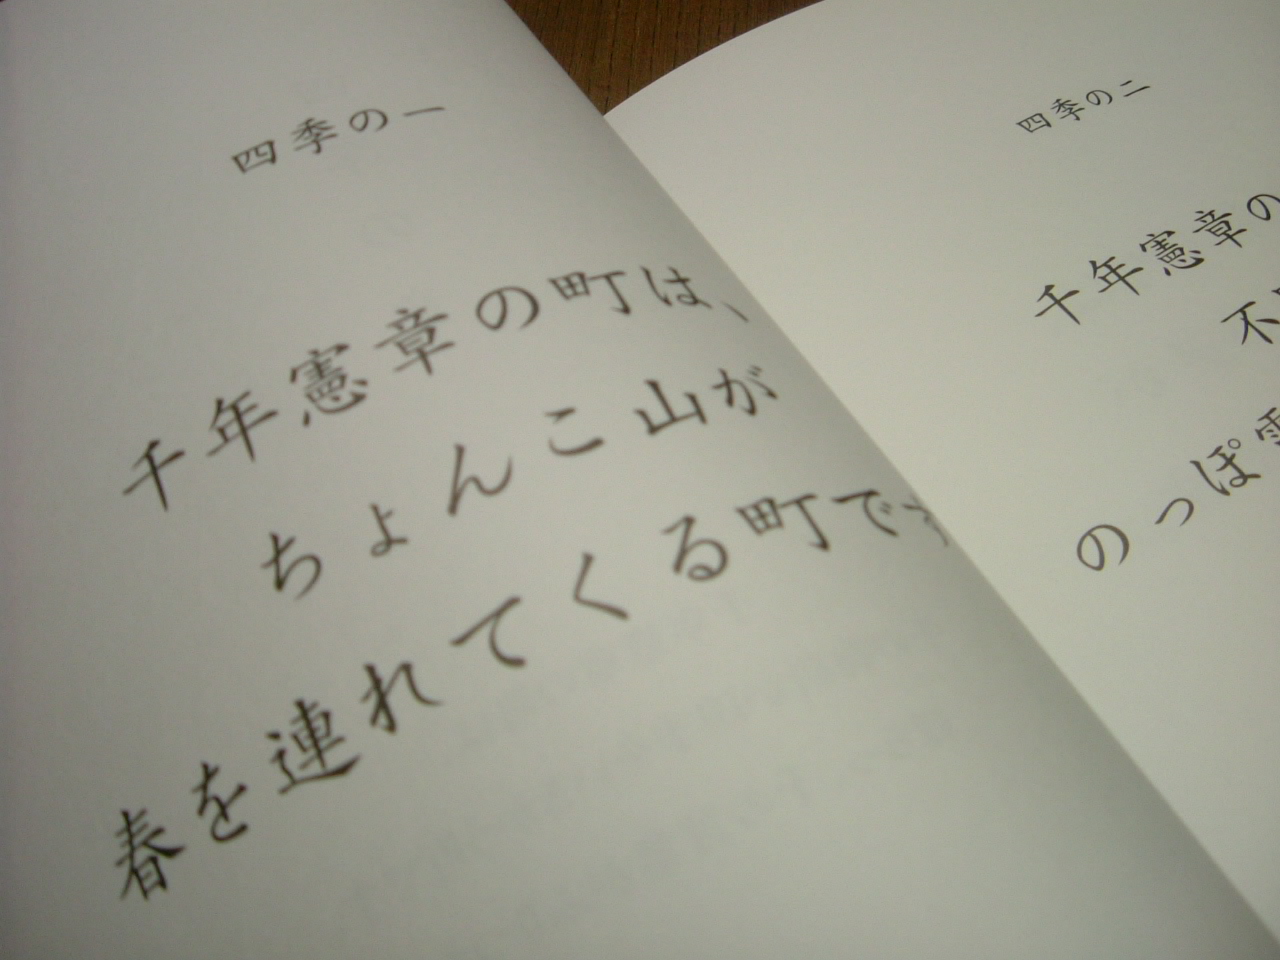 四季の一
千年憲章の町は、
ちょんこ山が
春を連れてくる町です
四季の二
千年憲章の
不
のっぽ雪